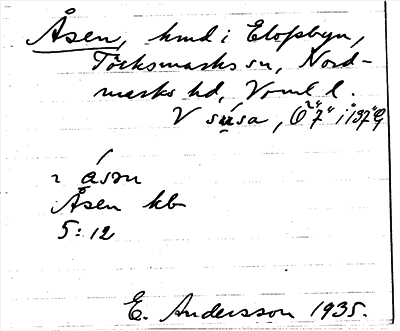 Åsen, hmd i Elofsbyn,
Töcksmarks sn, Nord-
marks hd, Vrml l.
V súsa, Ö "7" i "137" G
åsən
Åsen kb
5:12
E. Andersson 1935.